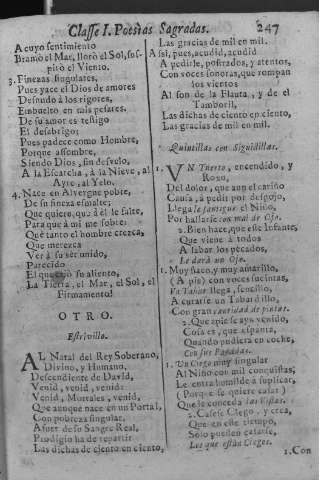 Classe I. Poesias Sagradas. 247
A cuyo sentimiento
Bramò el Mar, llorò el Sol, sus-
pirò el Viento.
3. Finezas singulares,
Pues yace el Dios de amores
Desnudo à los rigores,
Embuelto en mis pesares.
De su amor es testigo
El desabrigo;
Pues padece como Hombre,
Porque assombre,
Siendo Dios, sin desvelo,
A la Escarcha, à la Nieve, al
Ayre, al Yelo.
4. Nace en Alvergue pobre,
De su fineza esmalte;
Que quiere, que à èl le falte,
Para que à mi me sobre.
Què tanto el hombre crezca,
Que merezca
Ver à su sèr unido,
Parecido
El que su aliento,
La Tierra, el Mar, el Sol, el
Firmamento!
OTRO.
Estrivillo.
AL Natal del Rey Soberano,
Divino, y Humano,
Descendiente de David,
Venid, venid, venid:
Venid, Mortales, venid,
Que aunque nace en un Portal,
Con pobreza singular,
A fuer de su Sangre Real,
Prodigio ha de repartir
Las dichas de ciento en ciento,
Las gracias de mil en mil.
Assi, pues, acudid, acudid
A pedirle, postrados, y atentos,
Con voces sonoras, que rompan
los vientos
Al son de la Flauta, y de el
Tamboril,
Las dichas de ciento en ciento,
Las gracias de mil en mil.
Quintillas con Siguidillas.
1. UN Tuerto, encendido, y
Roxo,
Del dolor, que aun el cariño
Causa, à pedir por despojo,
Llega le sanasse el Niño,
Por hallarse con mal de Ojo.
2. Bien hace, que este Infante,
Que viene à todos
A labar los pecados,
Le darà un Ojo.
1. Muy flaco, y muy amarillo,
(A pie) con voces sucintas,
Un Tahur llega, sencillo,
A curarse un Tabardillo,
Con gran cantidad de pintas.
2. Que apie se aya venido,
Cosa es, que espanta,
Quando pudiera en coche,
Con sus Paradas.
1. Un Ciego muy singular
Al Niño con mil conquistas,
Le entra humilde à suplicar,
(Porque se quiere casar)
Que le conceda las Vistas.
2. Casese Ciego, y crea,
Que en este tiempo,
Solo pueden casarse,
Los que estàn Ciegos.
1. Con